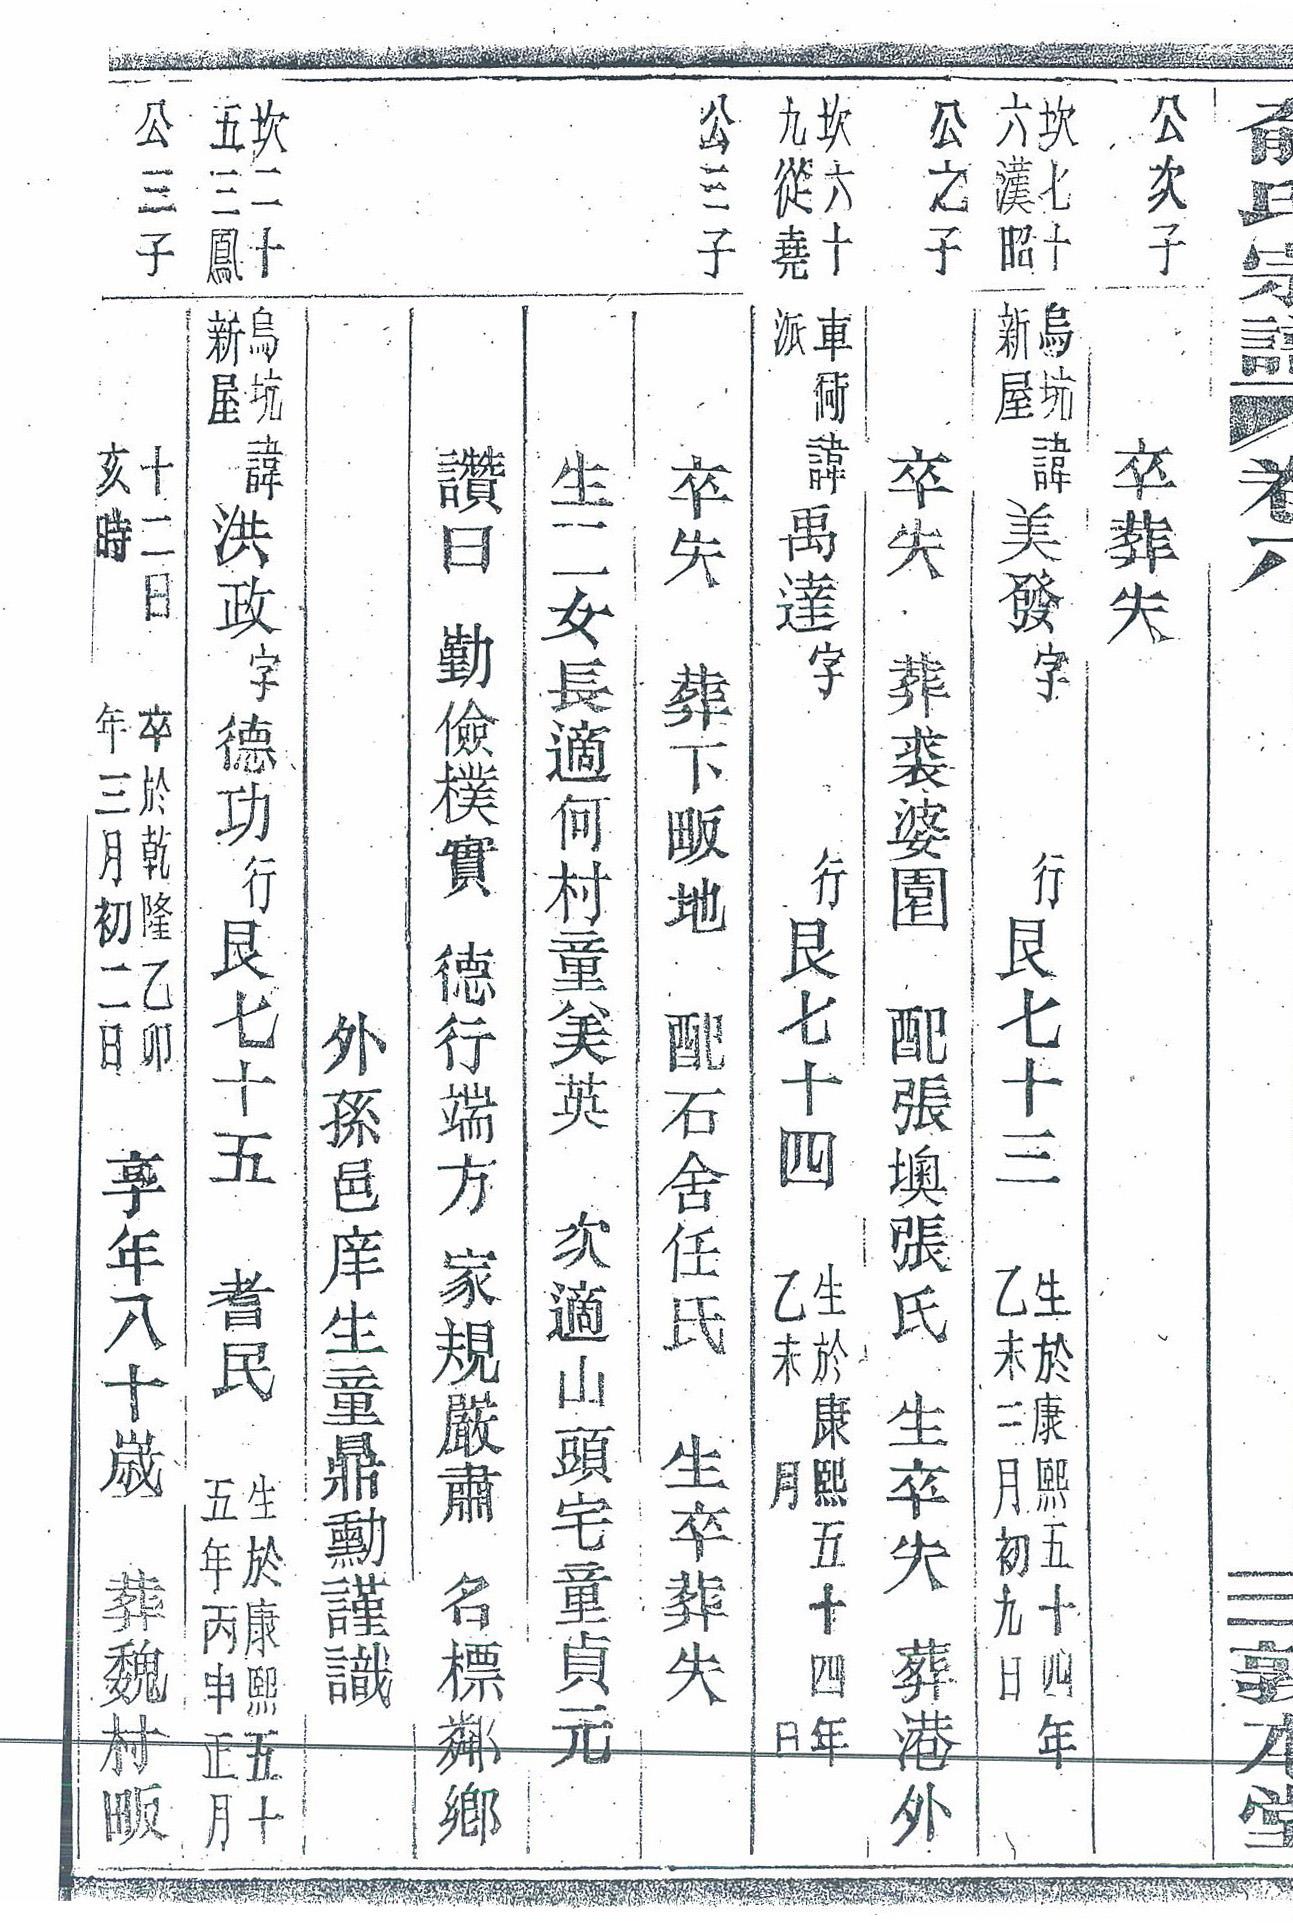 俞氏宗譜 卷六 三 敦本堂
公次子 卒葬失
坎七十六漢昭 烏坑新屋 諱美發字 行艮七十三 生於康熙五十四年乙未二月初九日
公之子 卒失 葬裘婆園 配張墺張氏 生卒失 葬港外
坎六十九從堯 車衕派 諱禹達字 行艮七十四 生於康熙五十四年乙未 月 日
公三子 卒失 葬下畈地 配石舍任氏 生卒葬失
生二女長適何村童美英 次適山頭宅童貞元
讚曰 勤儉樸實 德行端方 家規嚴肅 名標鄰鄉
外孫邑庠生童鼎勳謹識
坎二十五三鳳 烏坑新屋 諱洪政字德功行艮七十五 耆民 生於康熙五十五年丙申正月
公三子 十二日亥時 卒於乾隆乙卯年三月初二日 享年八十歲 葬魏村畈